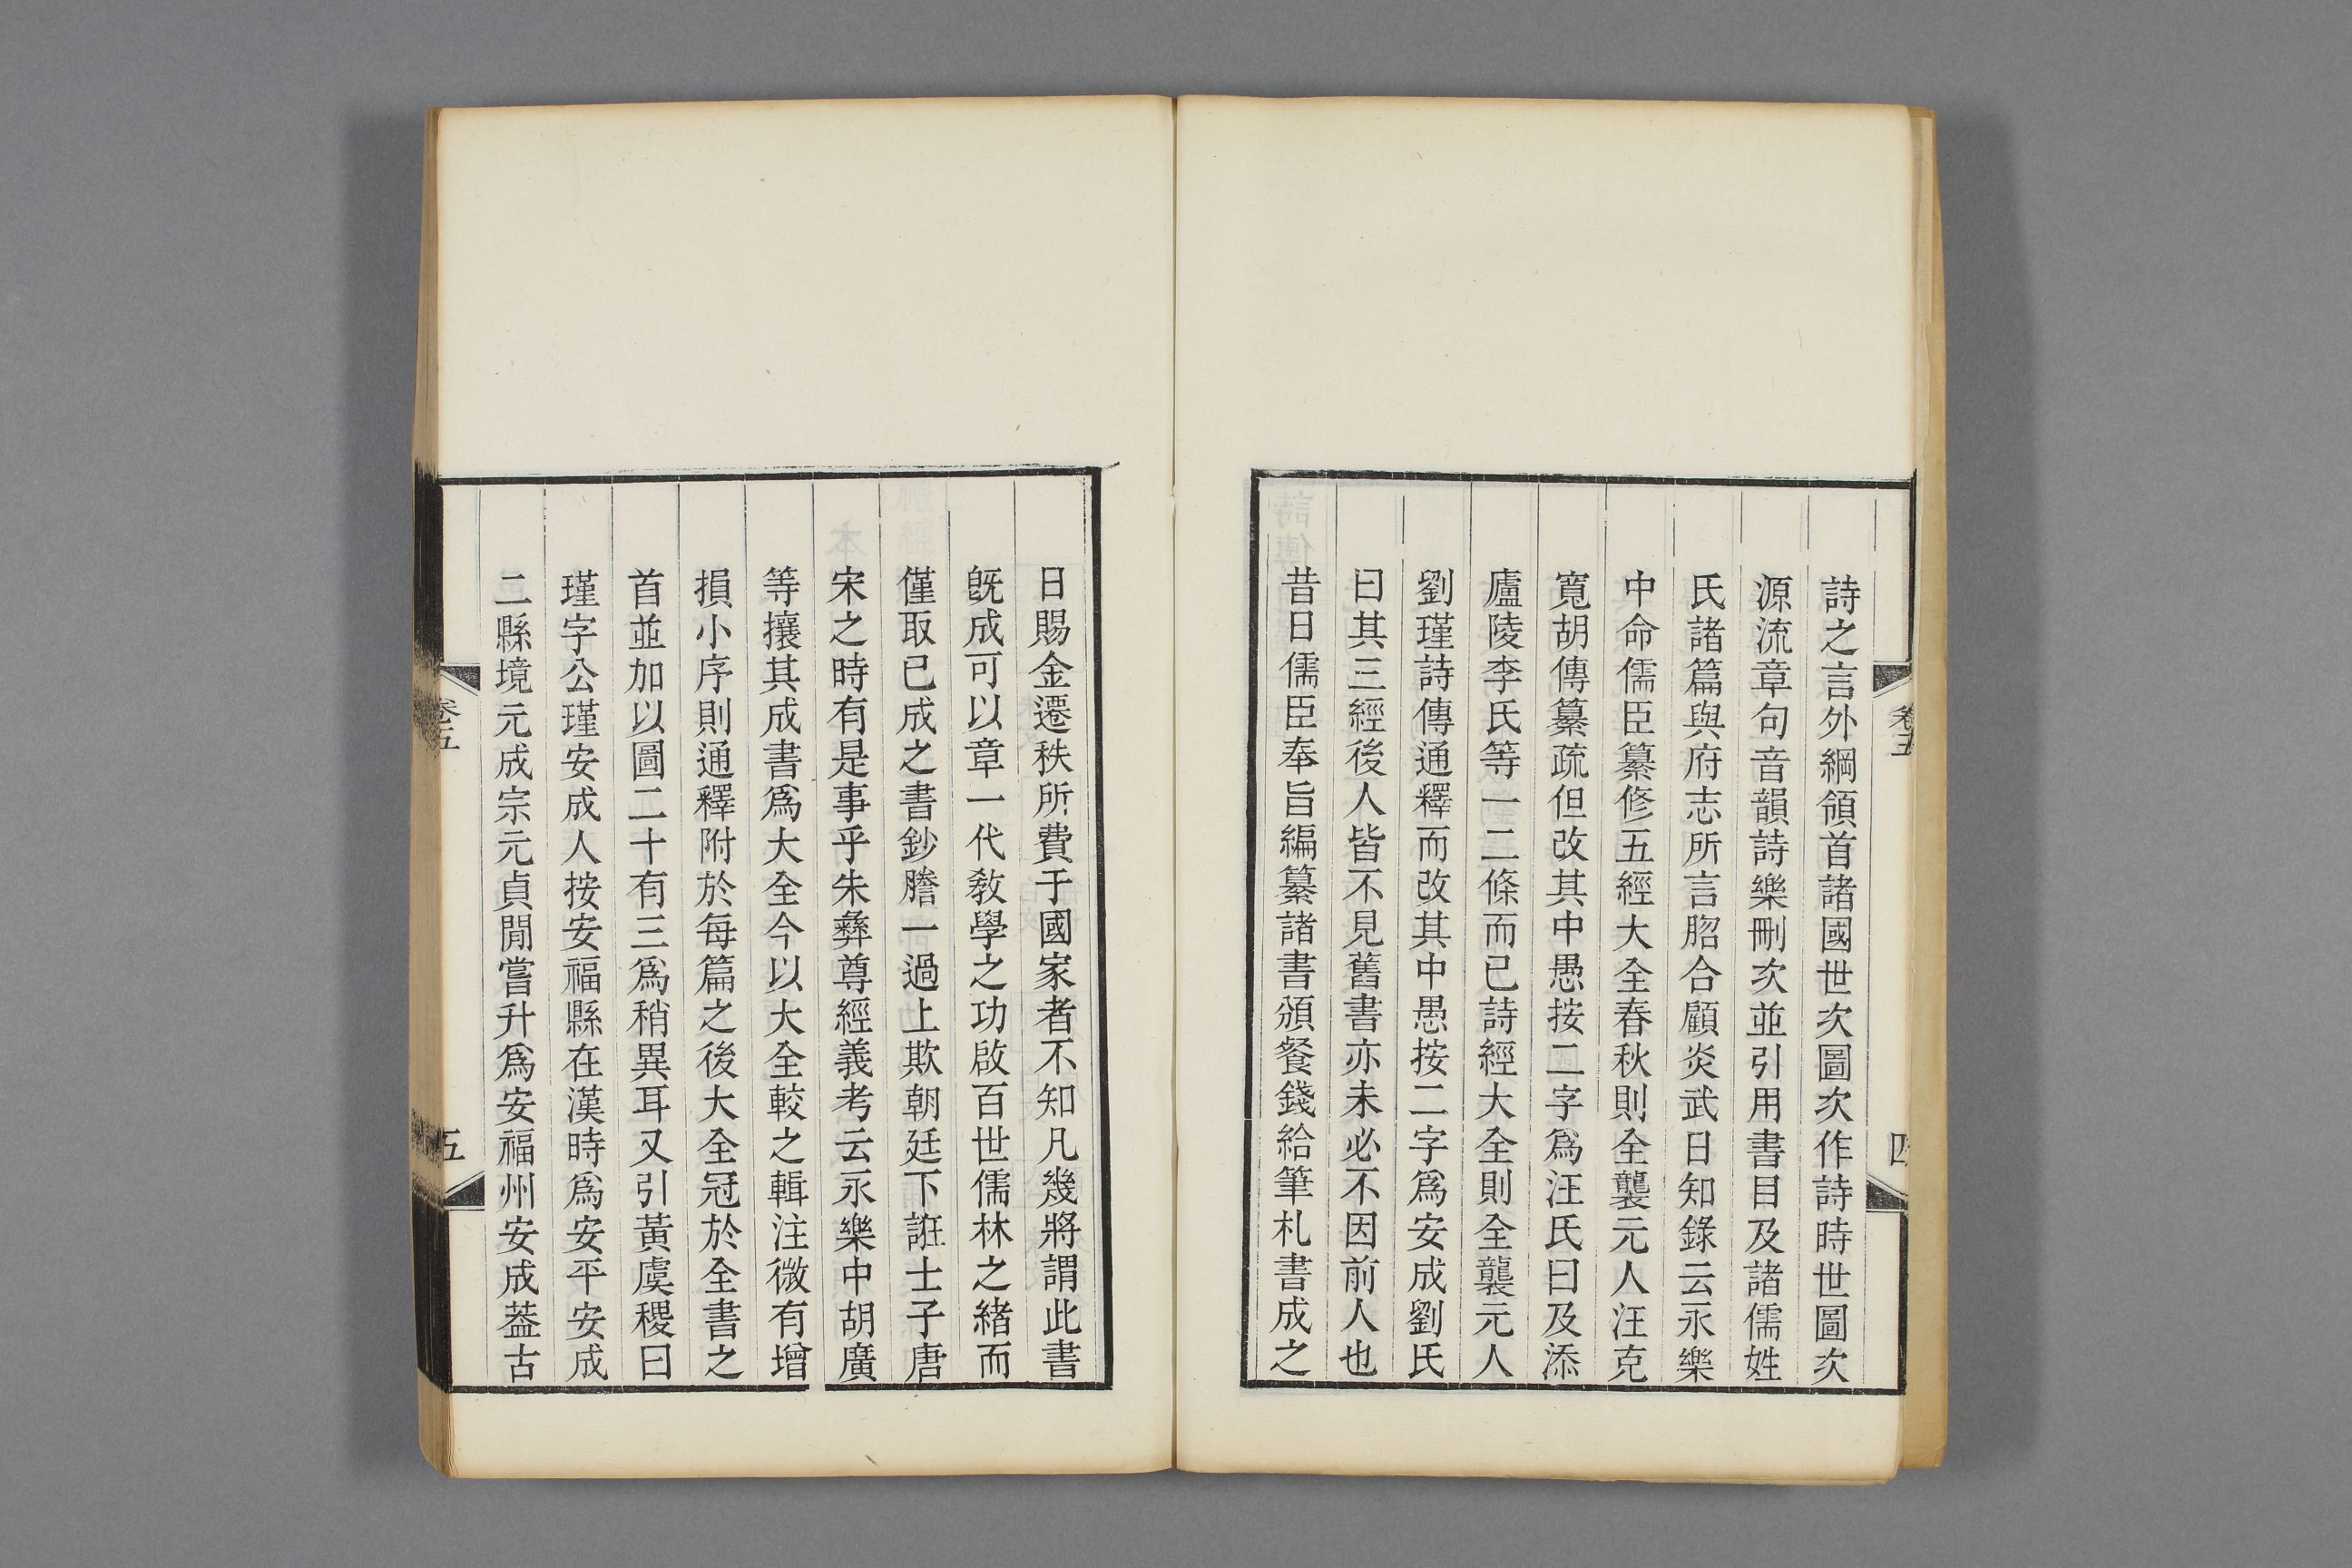 詩之言外綱領首諸國世次圖次作詩時世圖次
源流章句音韻詩樂刪次並引用書目及諸儒姓
氏諸篇與府志所言脗合顧炎武日知錄云永樂
中命儒臣纂修五經大全春秋則全襲元人汪克
寬胡傳纂疏但改其中愚按二字爲汪氏曰及添
廬陵李氏等一二條而已詩經大全則全襲元人
劉瑾詩傳通釋而改其中愚按二字爲安成劉氏
曰其三經後人皆不見舊書亦未必不因前人也
昔日儒臣奉旨編纂諸書頒餐錢給筆札書成之
卷五
四
日賜金遷秩所費于國家者不知凡幾將謂此書
旣成可以章一代敎學之功啟百世儒林之緒而
僅取已成之書鈔謄一過上欺朝廷下誑士子唐
宋之時有是事乎朱彝尊經義考云永樂中胡廣
等攘其成書爲大全今以大全較之輯注微有增
損小序則通釋附於每篇之後大全冠於全書之
首並加以圖二十有三爲稍異耳又引黃虞稷曰
瑾字公瑾安成人按安福縣在漢時爲安平安成
二縣境元成宗元貞閒嘗升爲安福州安成葢古
卷五
五